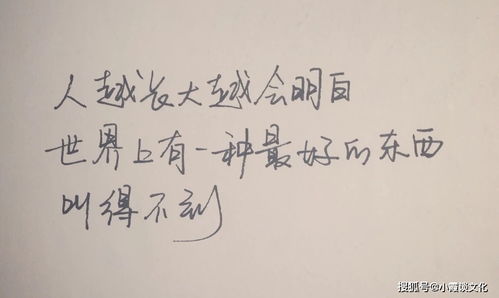 人越长大越会明白
世界上有一种最好的东西
叫得不到
搜狐号@小霞谈文化